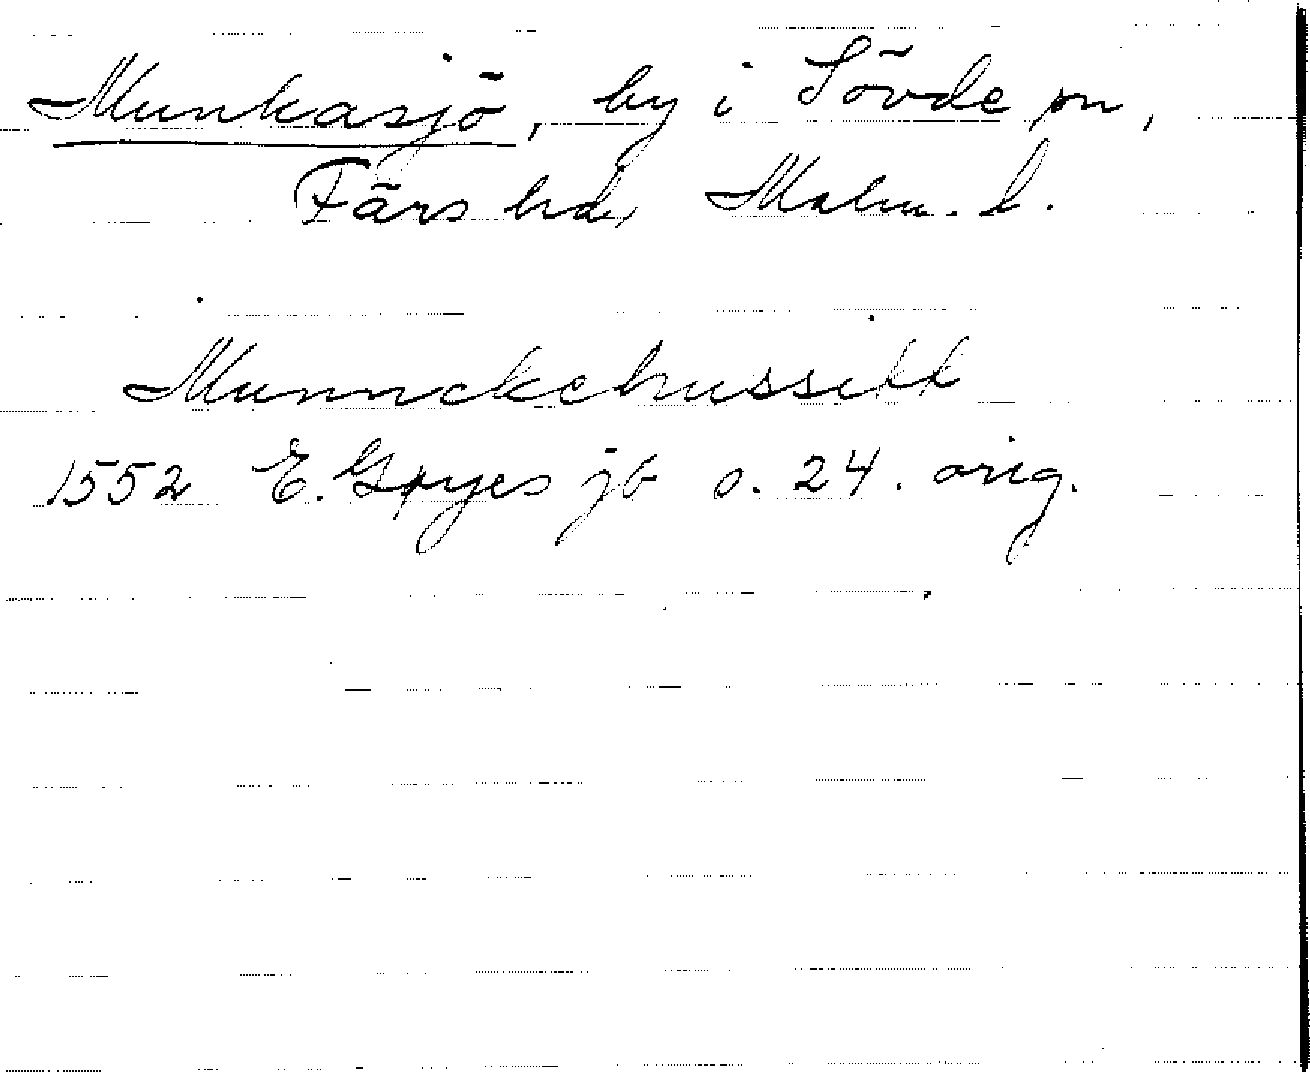 Munkasjö, by i Sövde sn,
Färs hd, Malm. l.
Munnckehussitt
1552 E. Gryes jb s. 24. orig.